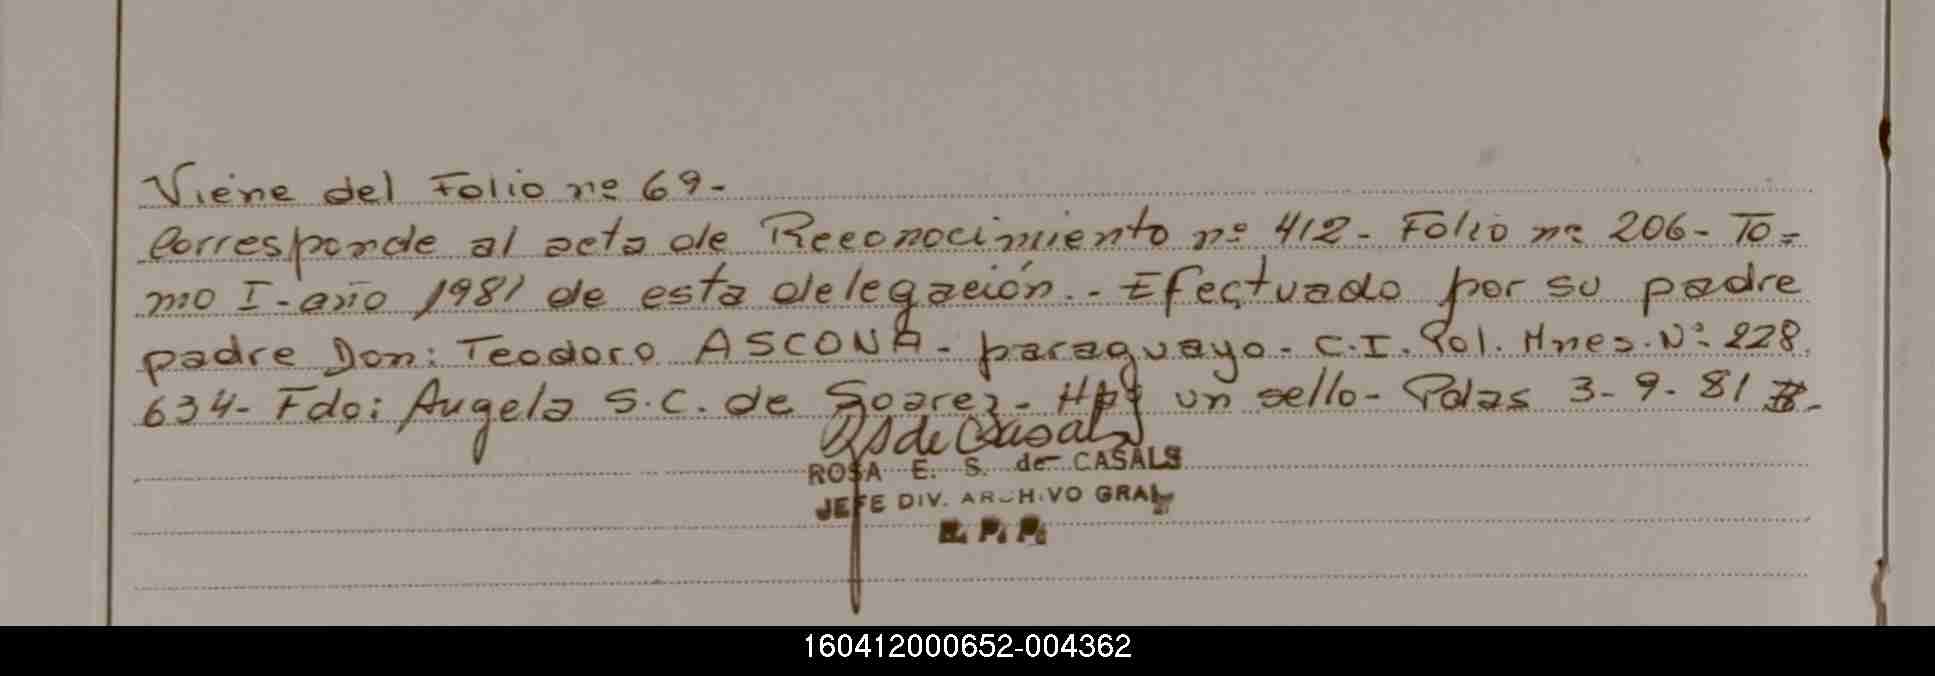 Viene del Folio nº 69-
Corresponde al acta de Reconocimiento nº 412- Folio nº 206- To=
mo I- año 1981 de esta delegación.- Efectuado por su padre
padre Don: Teodoro ASCONA- paraguayo- C.I. Pol. Mnes. Nº 228.
634- Fdo: Angela S.C. de Soarez- Hay un sello- Pdas 3-9-81
RS de Casals
ROSA E. S. de CASALS
JEFE DIV. ARCHIVO GRAL
R. P. P.
160412000652-004362